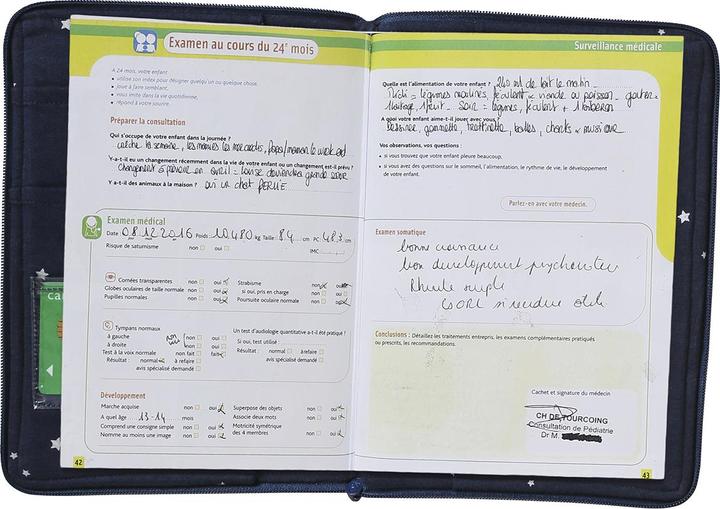 Examen au cours du 24e mois
A 24 mois, votre enfant
• utilise son index pour désigner quelqu'un ou quelque chose.
• joue à faire semblant.
• vous imite dans la vie quotidienne.
• répond à votre sourire.
Préparer la consultation
Qui s'occupe de votre enfant dans la journée ?
crèche la semaine, les mamies les mercredis, papa/maman le week end
Y-a-t-il eu un changement récemment dans la vie de votre enfant ou un changement est-il prévu ?
changement à prévoir en avril = Louise deviendra grande sœur
Y a-t-il des animaux à la maison ? oui un chat
Examen médical
Date 08 12 2016 Poids : 10480 kg Taille : 84 cm PC : 48,3 cm
Risque de saturnisme non oui IMC
Cornées transparentes non oui Strabisme non oui
Globes oculaires de taille normale non oui si oui, pris en charge non oui
Pupilles normales non oui Poursuite oculaire normale non oui
Tympans normaux Un test d'audiologie quantitative a-t-il été pratiqué ?
à gauche non oui Si oui, test utilisé :
à droite non oui Résultat : normal à refaire
Test à la voix normale non fait fait avis spécialisé demandé
Résultat : normal à refaire
avis spécialisé demandé
Développement
Marche acquise non oui Superpose des objets non oui
A quel âge 13-14 mois Associe deux mots non oui
Comprend une consigne simple non oui Motricité symétrique
Nomme au moins une image non oui des 4 membres non oui
42
Surveillance médicale
Quelle est l'alimentation de votre enfant ? 240 ml de lait le matin
Midi = légumes moulinés, féculent & viande ou poisson - gouter =
1 laitage, 1 fruit - soir = légumes, féculent + 1 biberon
A quoi votre enfant aime-t-il jouer avec vous ?
Dessiner, gommette, trottinette, balles, chants & musique
Vos observations, vos questions :
• si vous trouvez que votre enfant pleure beaucoup,
• si vous avez des questions sur le sommeil, l'alimentation, le rythme de vie, le développement
de votre enfant.
Parlez-en avec votre médecin.
Examen somatique
bonne croissance
bon développement psychomoteur
Rhinite simple
Conclusions : Détaillez les traitements entrepris, les examens complémentaires pratiqués
ou prescrits, les recommandations.
Cachet et signature du médecin
CH DE TOURCOING
Consultation de Pédiatrie
Dr M.
43